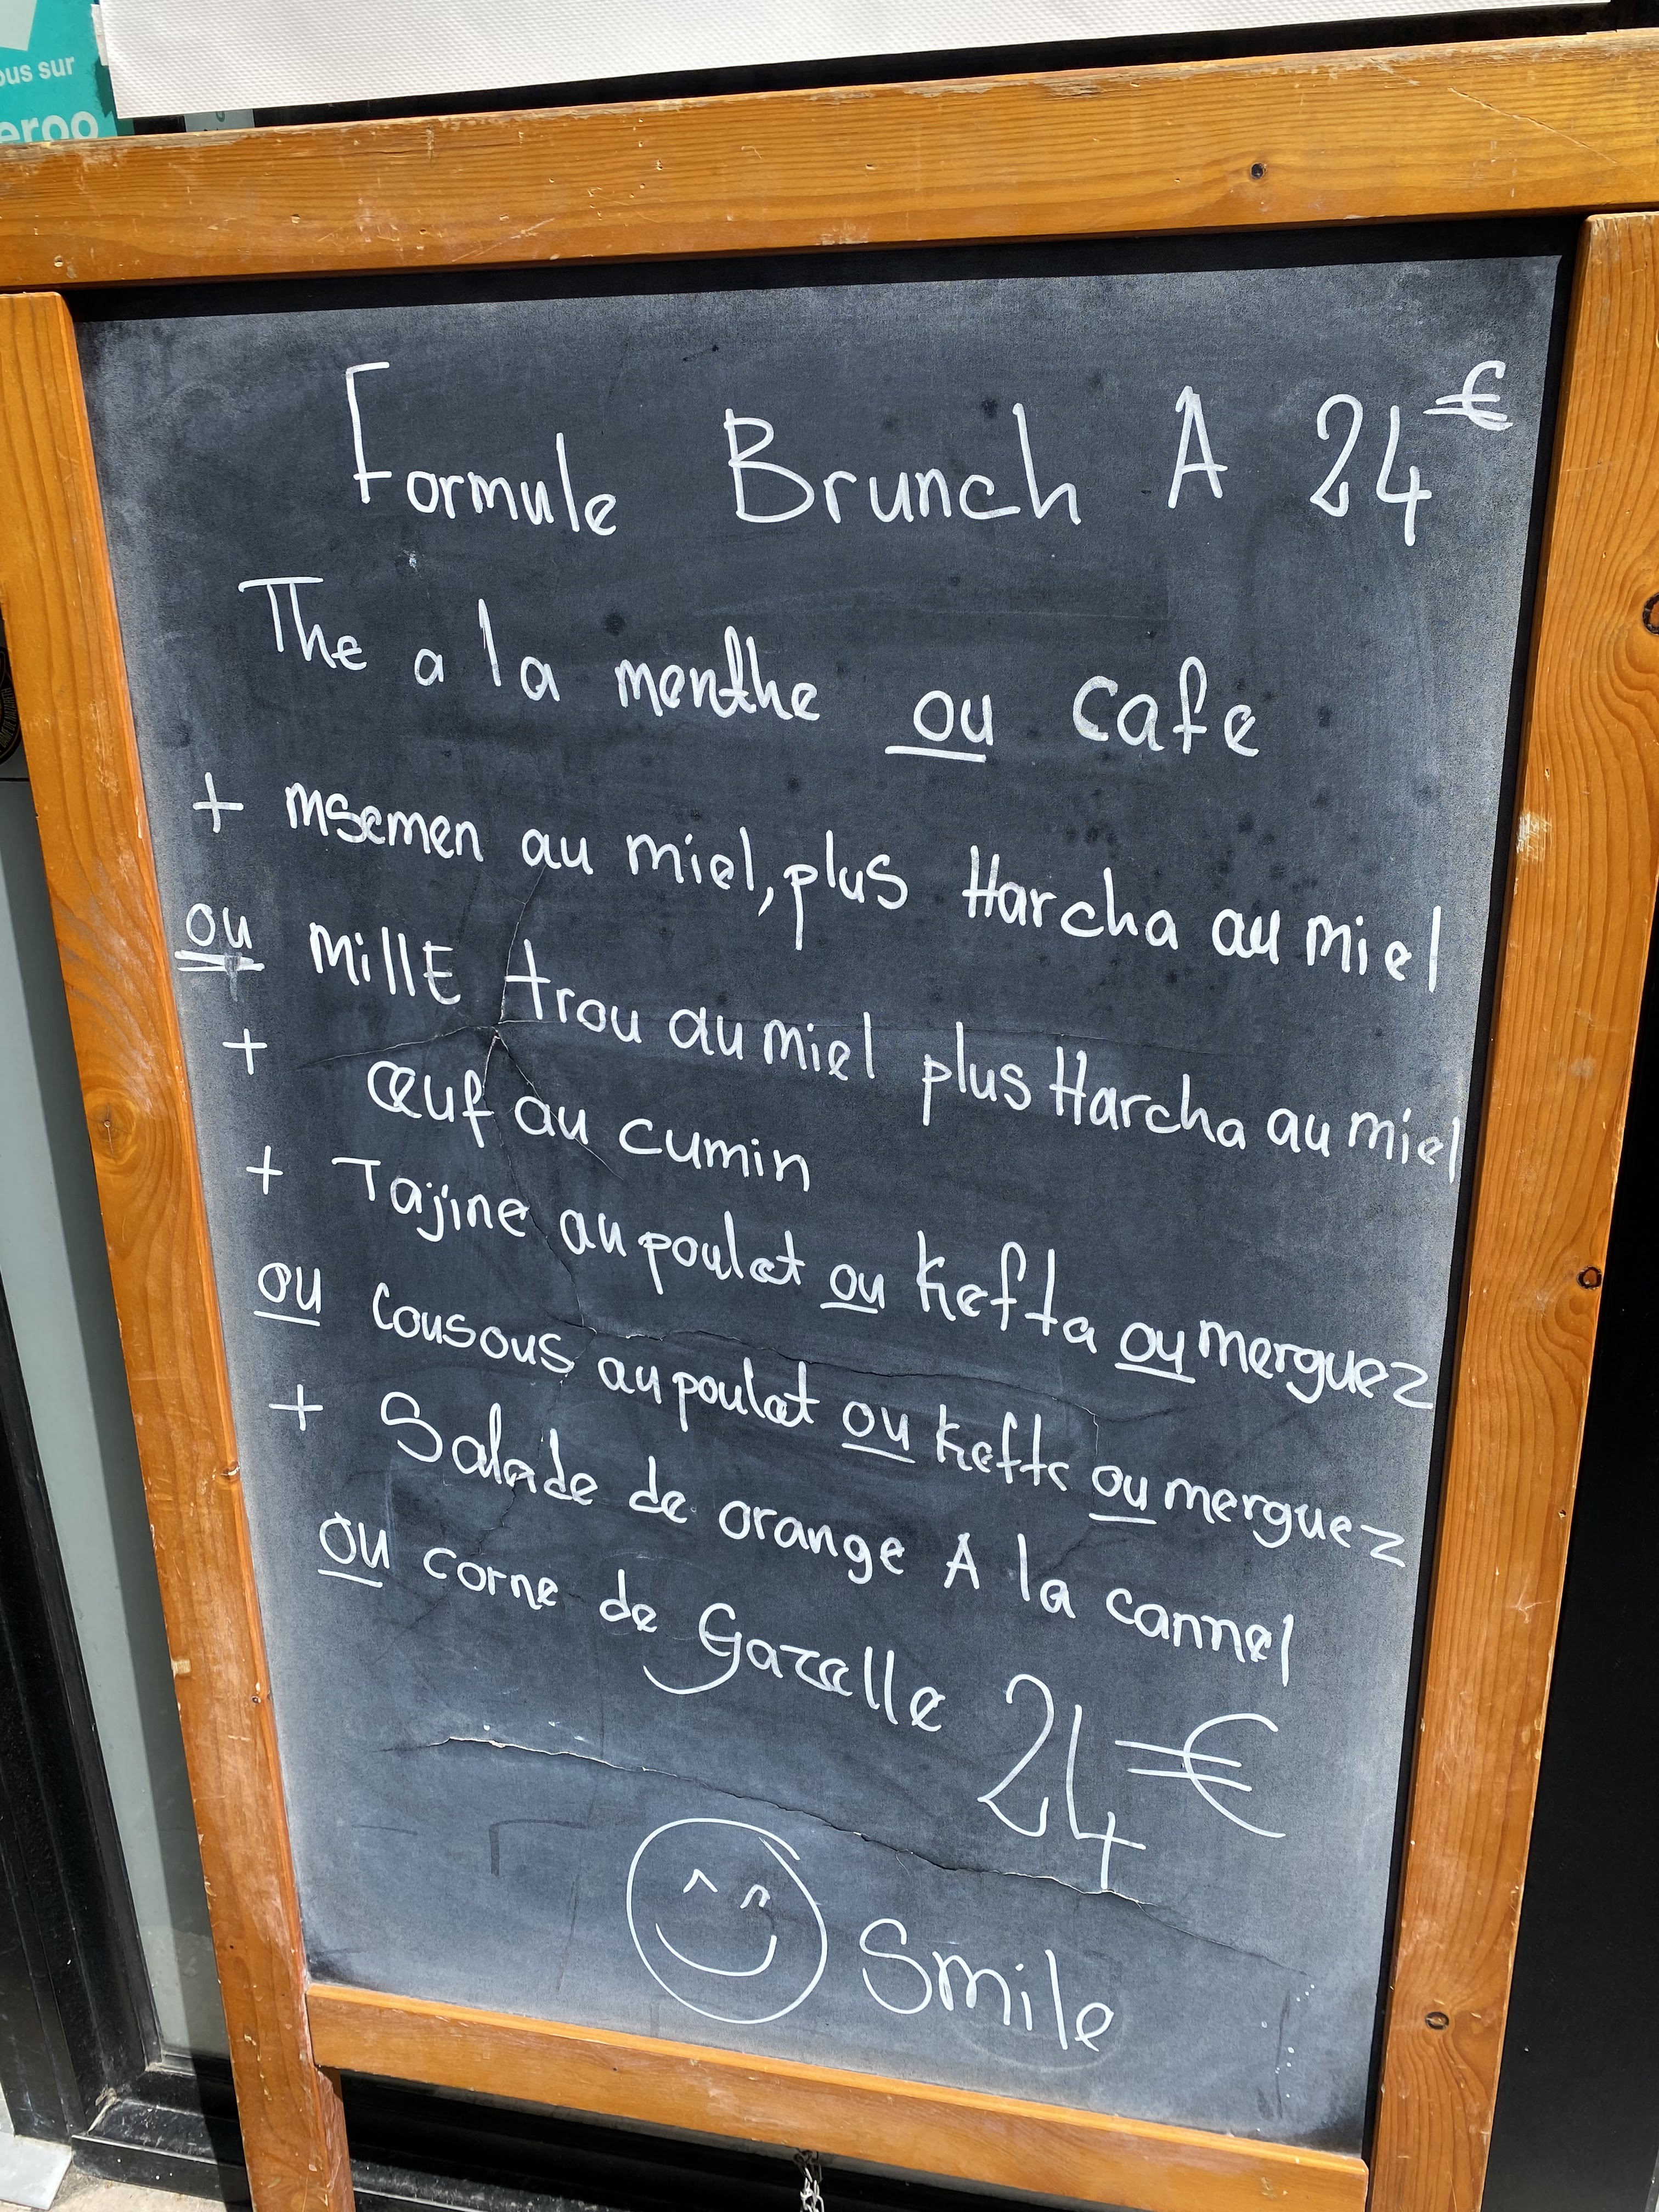 ous sur
eroo
Formule Brunch A 24€
The a la menthe ou cafe
+ msemen au miel, plus Harcha au miel
ou millE trou au miel plus Harcha au miel
+ œuf au cumin
+ Tajine au poulet ou Kefta ou merguez
ou cousous au poulet ou Kefta ou merguez
+ Salade de orange A la cannel
ou corne de Gazelle 24€
Smile